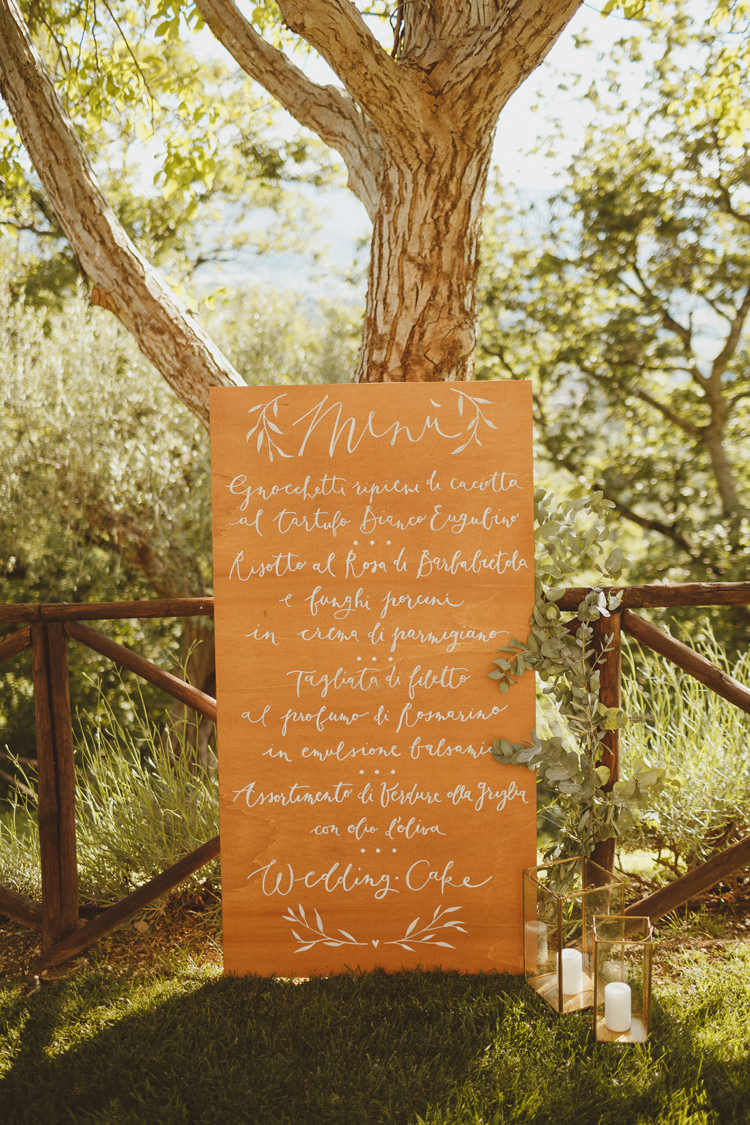 Menù
Gnocchetti ripieni di caciotta
al tartufo Bianco Eugubino
Risotto al Rosa di Barbabietola
e funghi porcini
in crema di parmigiano
Tagliata di filetto
al profumo di Rosmarino
in emulsione balsamic
Assortimento di Verdure alla Griglia
con olio d'oliva
Wedding Cake